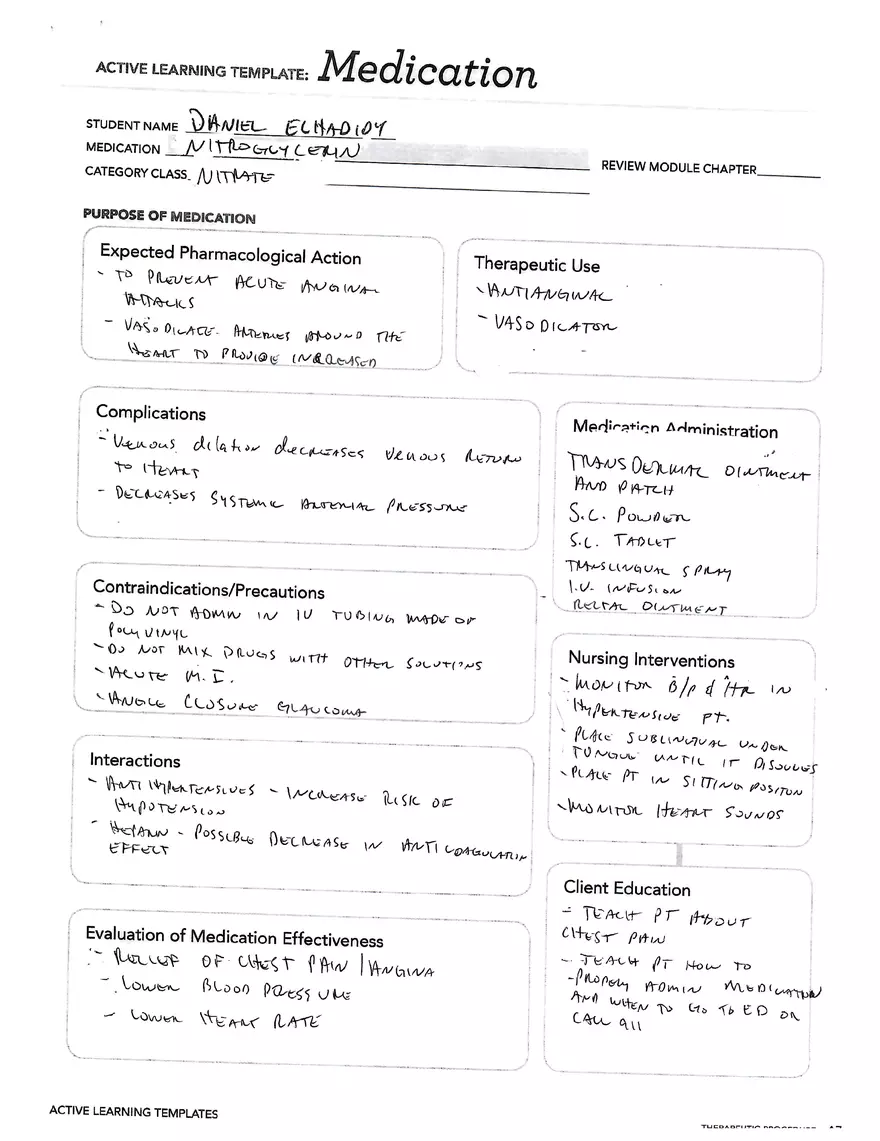 ACTIVE LEARNING TEMPLATE: Medication
STUDENT NAME DANIEL ELHADIDY
MEDICATION NITROGLYCERIN
REVIEW MODULE CHAPTER
CATEGORY CLASS NITRATE
PURPOSE OF MEDICATION
Expected Pharmacological Action
- TO PREVENT ACUTE ANGINAL
ATTACKS
- VASODILATE ARTERIES AROUND THE
HEART TO PROVIDE INCREASED
Therapeutic Use
- ANTIANGINAL
- VASODILATOR
Complications
- Venous dilation decreases venous return
to HEART
- DECREASES SYSTEMIC ARTERIAL PRESSURE
Medication Administration
TRANSDERMAL OINTMENT
AND PATCH
S.L. POWDER
S.L. TABLET
TRANSLINGUAL SPRAY
I.V. INFUSION
RECTAL OINTMENT
Contraindications/Precautions
- DO NOT ADMIN IN IV TUBING MADE OF
POLYVINYL
- DO NOT MIX DRUGS WITH OTHER SOLUTIONS
- ACUTE M.I.
- ANGLE CLOSURE GLAUCOMA
Nursing Interventions
- MONITOR B/P & HR IN
HYPERTENSIVE PT.
- PLACE SUBLINGUAL UNDER
TONGUE UNTIL IT DISOLVES
- PLACE PT IN SITTING POSITON
- MONITOR HEART SOUNDS
Interactions
- ANTIHYPERTENSIVES - INCREASE RISK OF
HYPOTENSION
- HEPARIN - POSSIBLE DECREASE IN ANTICOAGULATIN
EFFECT
Client Education
- TEACH PT ABOUT
CHEST PAIN
- TEACH PT HOW TO
- PROPERLY ADMIN MEDICATION
AND WHEN TO GO TO ED OR
CALL 911
Evaluation of Medication Effectiveness
- RELIEF OF CHEST PAIN/ANGINA
- LOWER BLOOD PRESSURE
- LOWER HEART RATE
ACTIVE LEARNING TEMPLATES